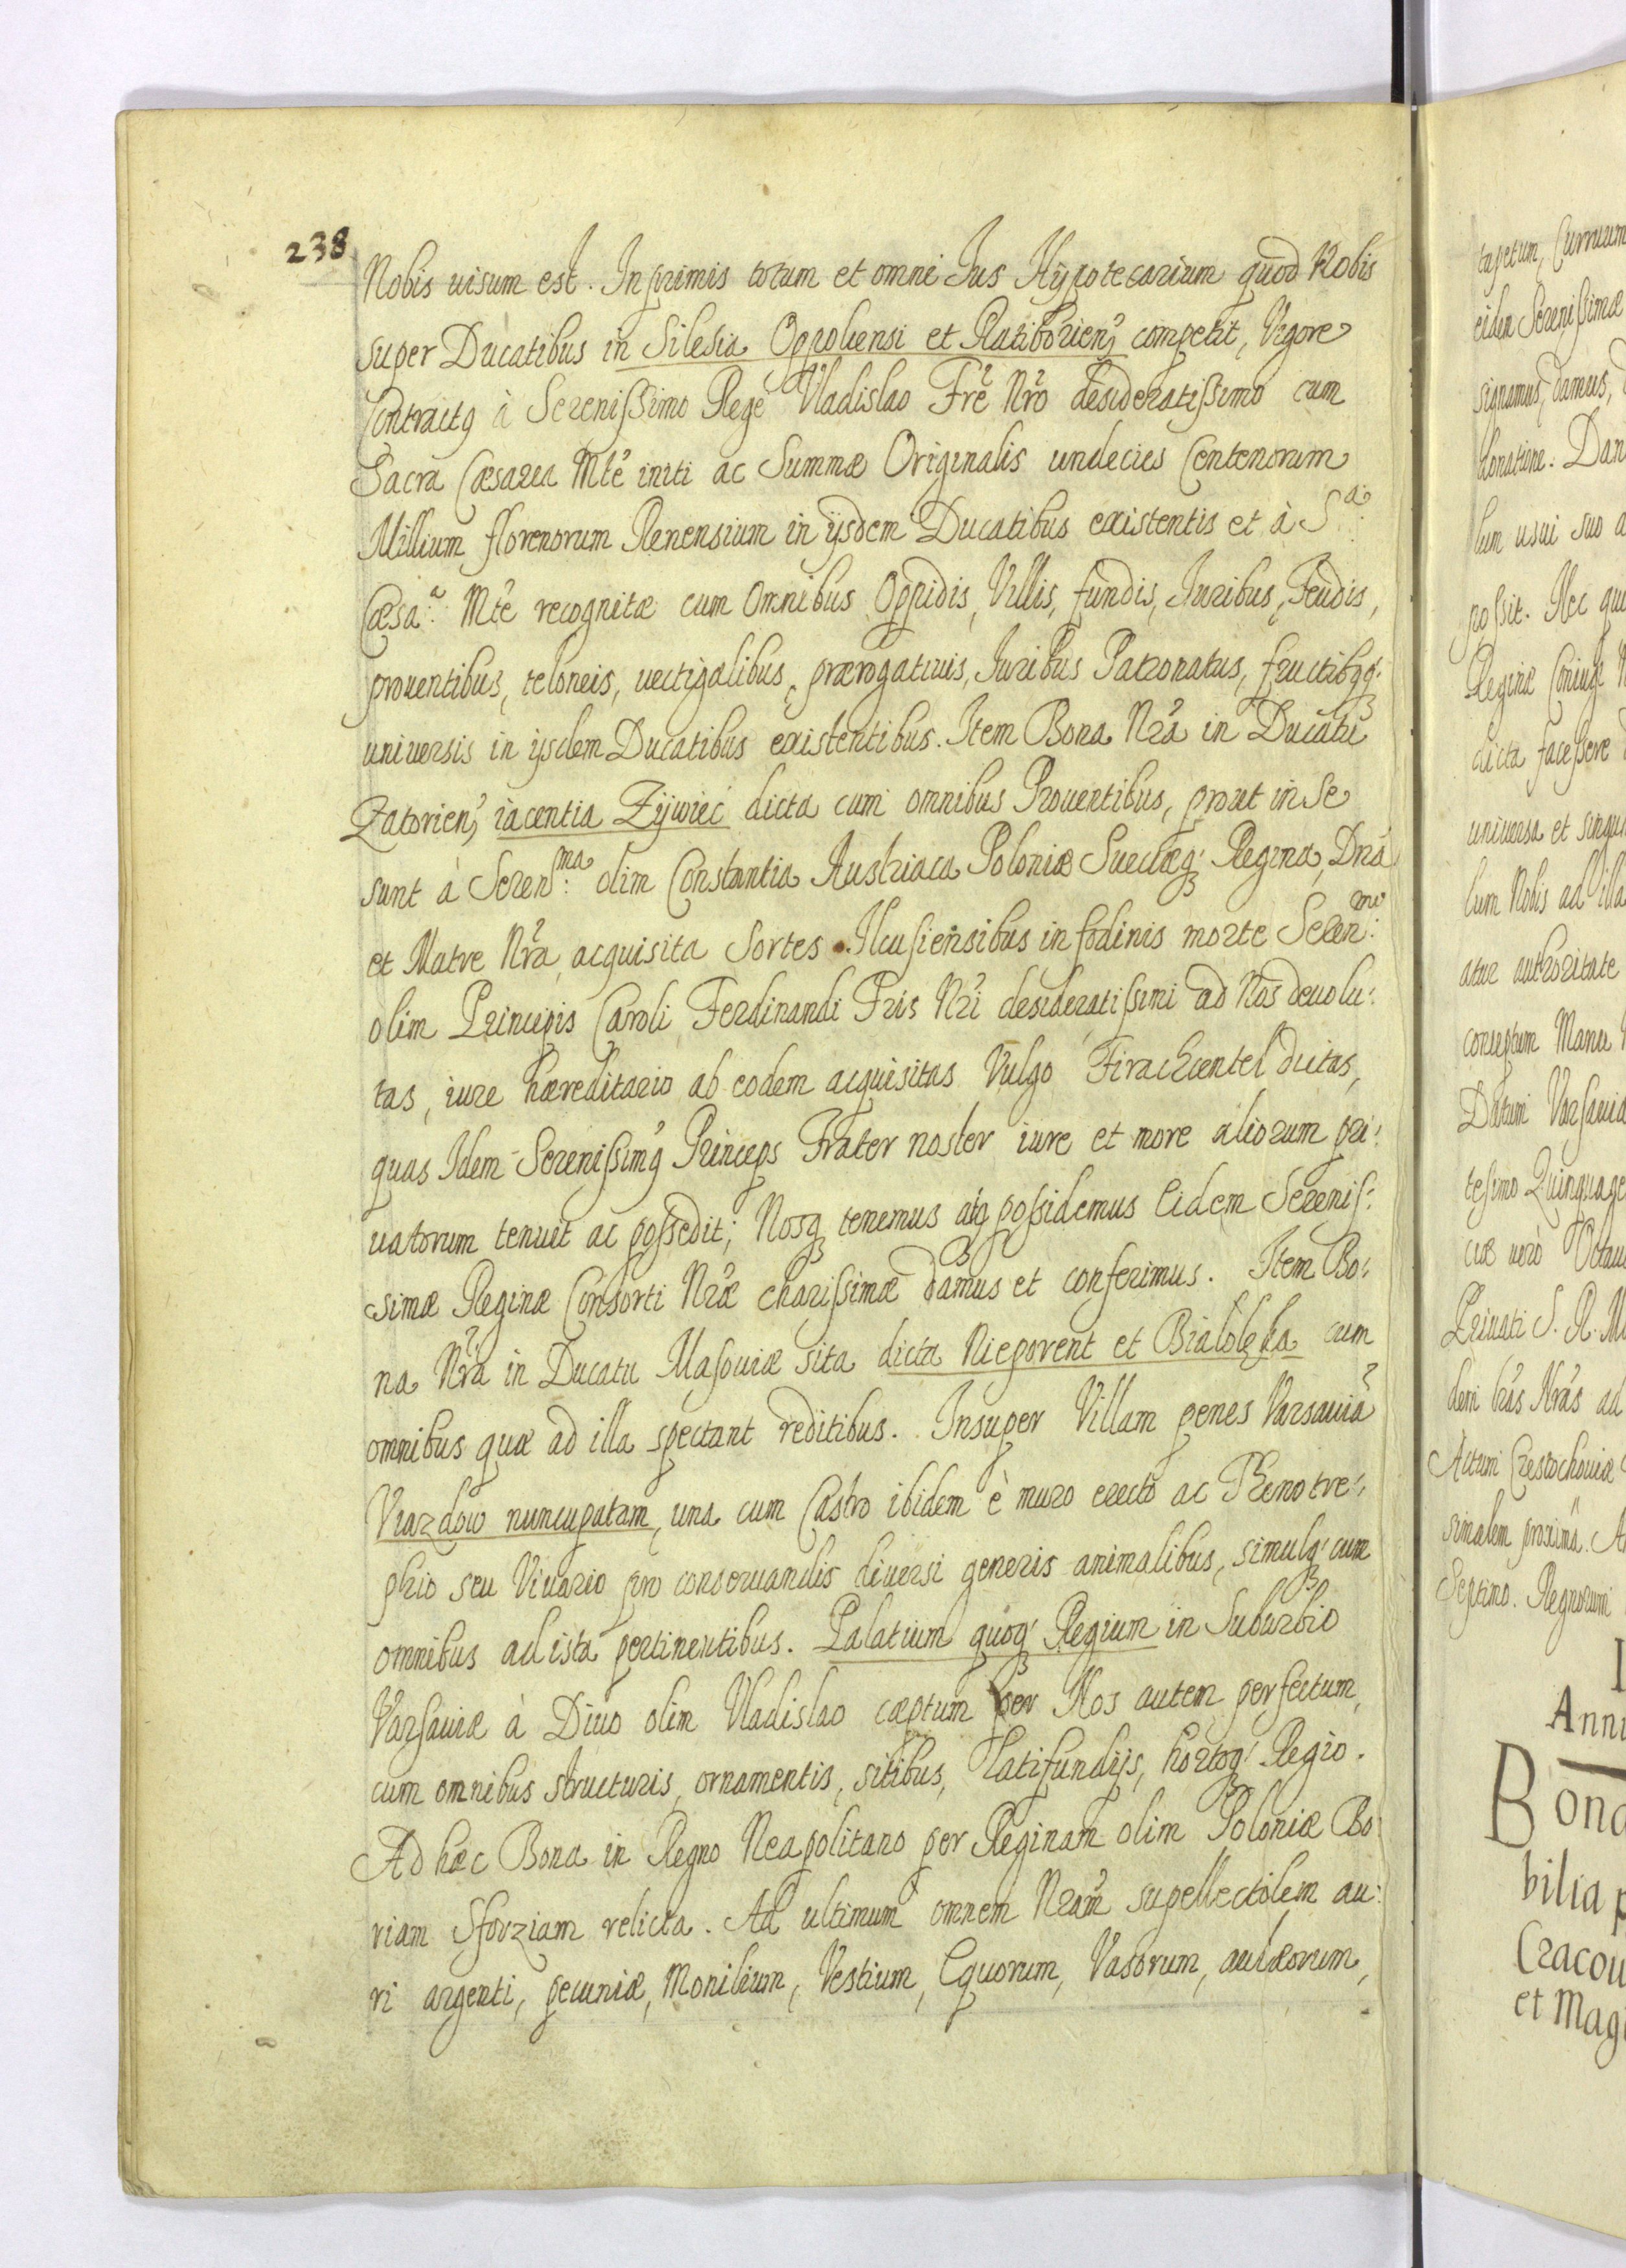 238
Nobis uisum est. In primis totum et omni Ius Hÿpotecarium quod Nobis
super Ducatibus in Silesia Oppoliensi et Ratiborien, competit, Vigore
Contractus à Serenissimo Rege Vladislao Fre Nro desideratissimo cum
Sacra Cæsarea Mte initi ac Summæ Originalis undecies Centenorum
Millium florenorum Renensium in ijsdem Ducatibus existentis et à S.a
Cæsa.a Mte recognitæ cum Omnibus Oppidis, Villis, fundis, Iuribus, Feudis,
prouentibus, teloneis, uectigalibus, prærogatiuis, Iuribus Patronatus, fructibqq;
universis in ijsdem Ducatibus existentibus. Item Bona Nra in Ducatu
Zatorien, iacentia Zÿwiec dicta cum omnibus Prouentibus, prout in se
sunt à Seren:ma olim Constantia Austriaca Poloniæ Sueciæq; Regina, Dna
et Matre Nra acquisita Sortes Ilcusiensibus in fodinis morte Seren:mi
olim Principis Caroli Ferdinandi Fris Nri desideratissimi ad Nos deuolu:
tas, iure hæreditario ab eodem acquisitas Vulgo Firachcentel dictas,
quas Idem Serenissimq Princeps Frater noster iure et more aliorum pri:
uatorum tenuit ac possedit; Nosq; tenemus atq; possidemus Eidem Serenis:
simæ Reginæ Consorti Nræ charissimæ damus et conferimus. Item Bo:
na Nra in Ducatu Masouiæ sita dicta Nieporent et Białołęka cum
omnibus quæ ad illa spectant reditibus. Insuper Villam penes Varsauiã
Viazdow nuncupatam, una cum Castro ibidem è muro erecto ac Theriotre:
phio seu Viuario pro conseruandis diuersi generis animalibus, simulq; cum
omnibus ad ista pertinentibus. Palatium quoq; Regium in Suburbio
Varsauiæ à Diuo olim Vladislao cæptum per Nos autem perfectum,
cum omnibus structuris, ornamentis, sitibus, latifundijs, hortoq; Regio.
Ad hæc Bona in Regno Neapolitano per Reginam olim Poloniæ Bo:
nam Sforziam relicta. Ad ultimum omnem Nram supellectilem au:
ri argenti, pecuniæ, Monilium, Vestium, Equorum, Vasorum, aulæorum,
tapetum, Curruum
eidem Serenissimæ
signamus, damus,
donatione. Dan
lum usui suo a
possit. Nec qui
Reginæ Coniugi N
dicta facessere
universa et singu
lum Nobis ad illa
atur authoritate
conseptum Manu
Datum Varsauiæ
tesimo Quinquage
ciæ uero Octau
Priuati S. R. M
dem hras Nras ad
Actum Czestochouiæ
simalem proximã. A
Septimo. Regnorum
I
Anni
Bona
bilia p
Cracou
et Mag